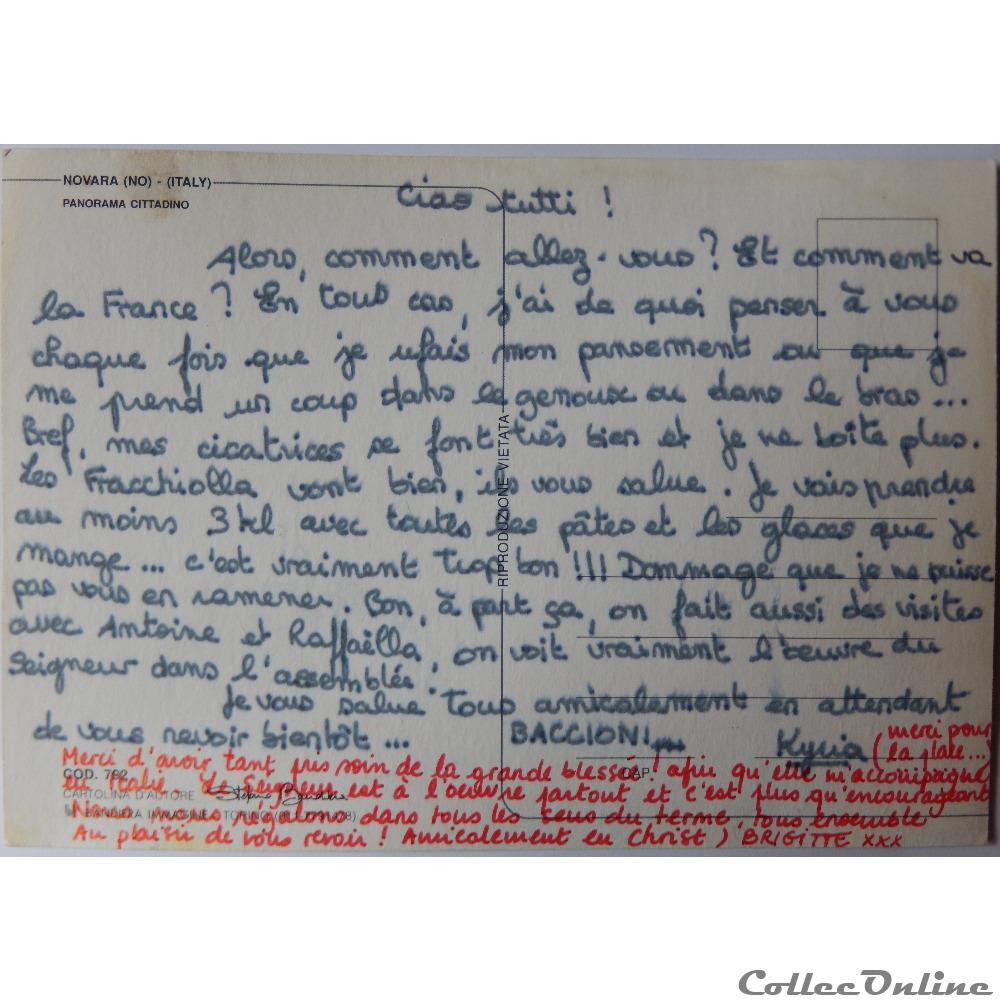 NOVARA (NO) - (ITALY)
PANORAMA CITTADINO
Ciao tutti !
Alors, comment allez-vous ? Et comment va
la France ? En tous cas, j'ai de quoi penser à vous
chaque fois que je refais mon pansement ou que je
me prend un coup dans le genoux ou dans le bras ...
Bref, mes cicatrices se font très bien et je ne boite plus.
Les Fracchiolla vont bien, ils vous salue. Je vais prendre
au moins 3 kl avec toutes les pâtes et les glaces que je
mange ... c'est vraiment trop bon !!! Dommage que je ne puisse
pas vous en ramener. Bon, à part ça, on fait aussi des visites
avec Antoine et Raffaëlla, on voit vraiment l'œuvre du
Seigneur dans l'assemblée.
Je vous salue tous amicalement en attendant
de vous revoir bientôt ...
BACCIONI
Kyria (merci pour
la plate...)
RIPRODUZIONE VIETATA
Merci d'avoir tant pris soin de la grande blessée ! afin qu'elle m'accompagne
en Italie. Le Seigneur est à l'œuvre partout et c'est plus qu'encourageant
Nous nous régalons dans tous les sens du terme, tous ensemble
Au plaisir de vous revoir ! Amicalement en Christ, BRIGITTE xxx
COD. 792
CAP.
CARTOLINA D'AUTORE
BANDIERA IMMAGINE - TORINO
CollecOnline